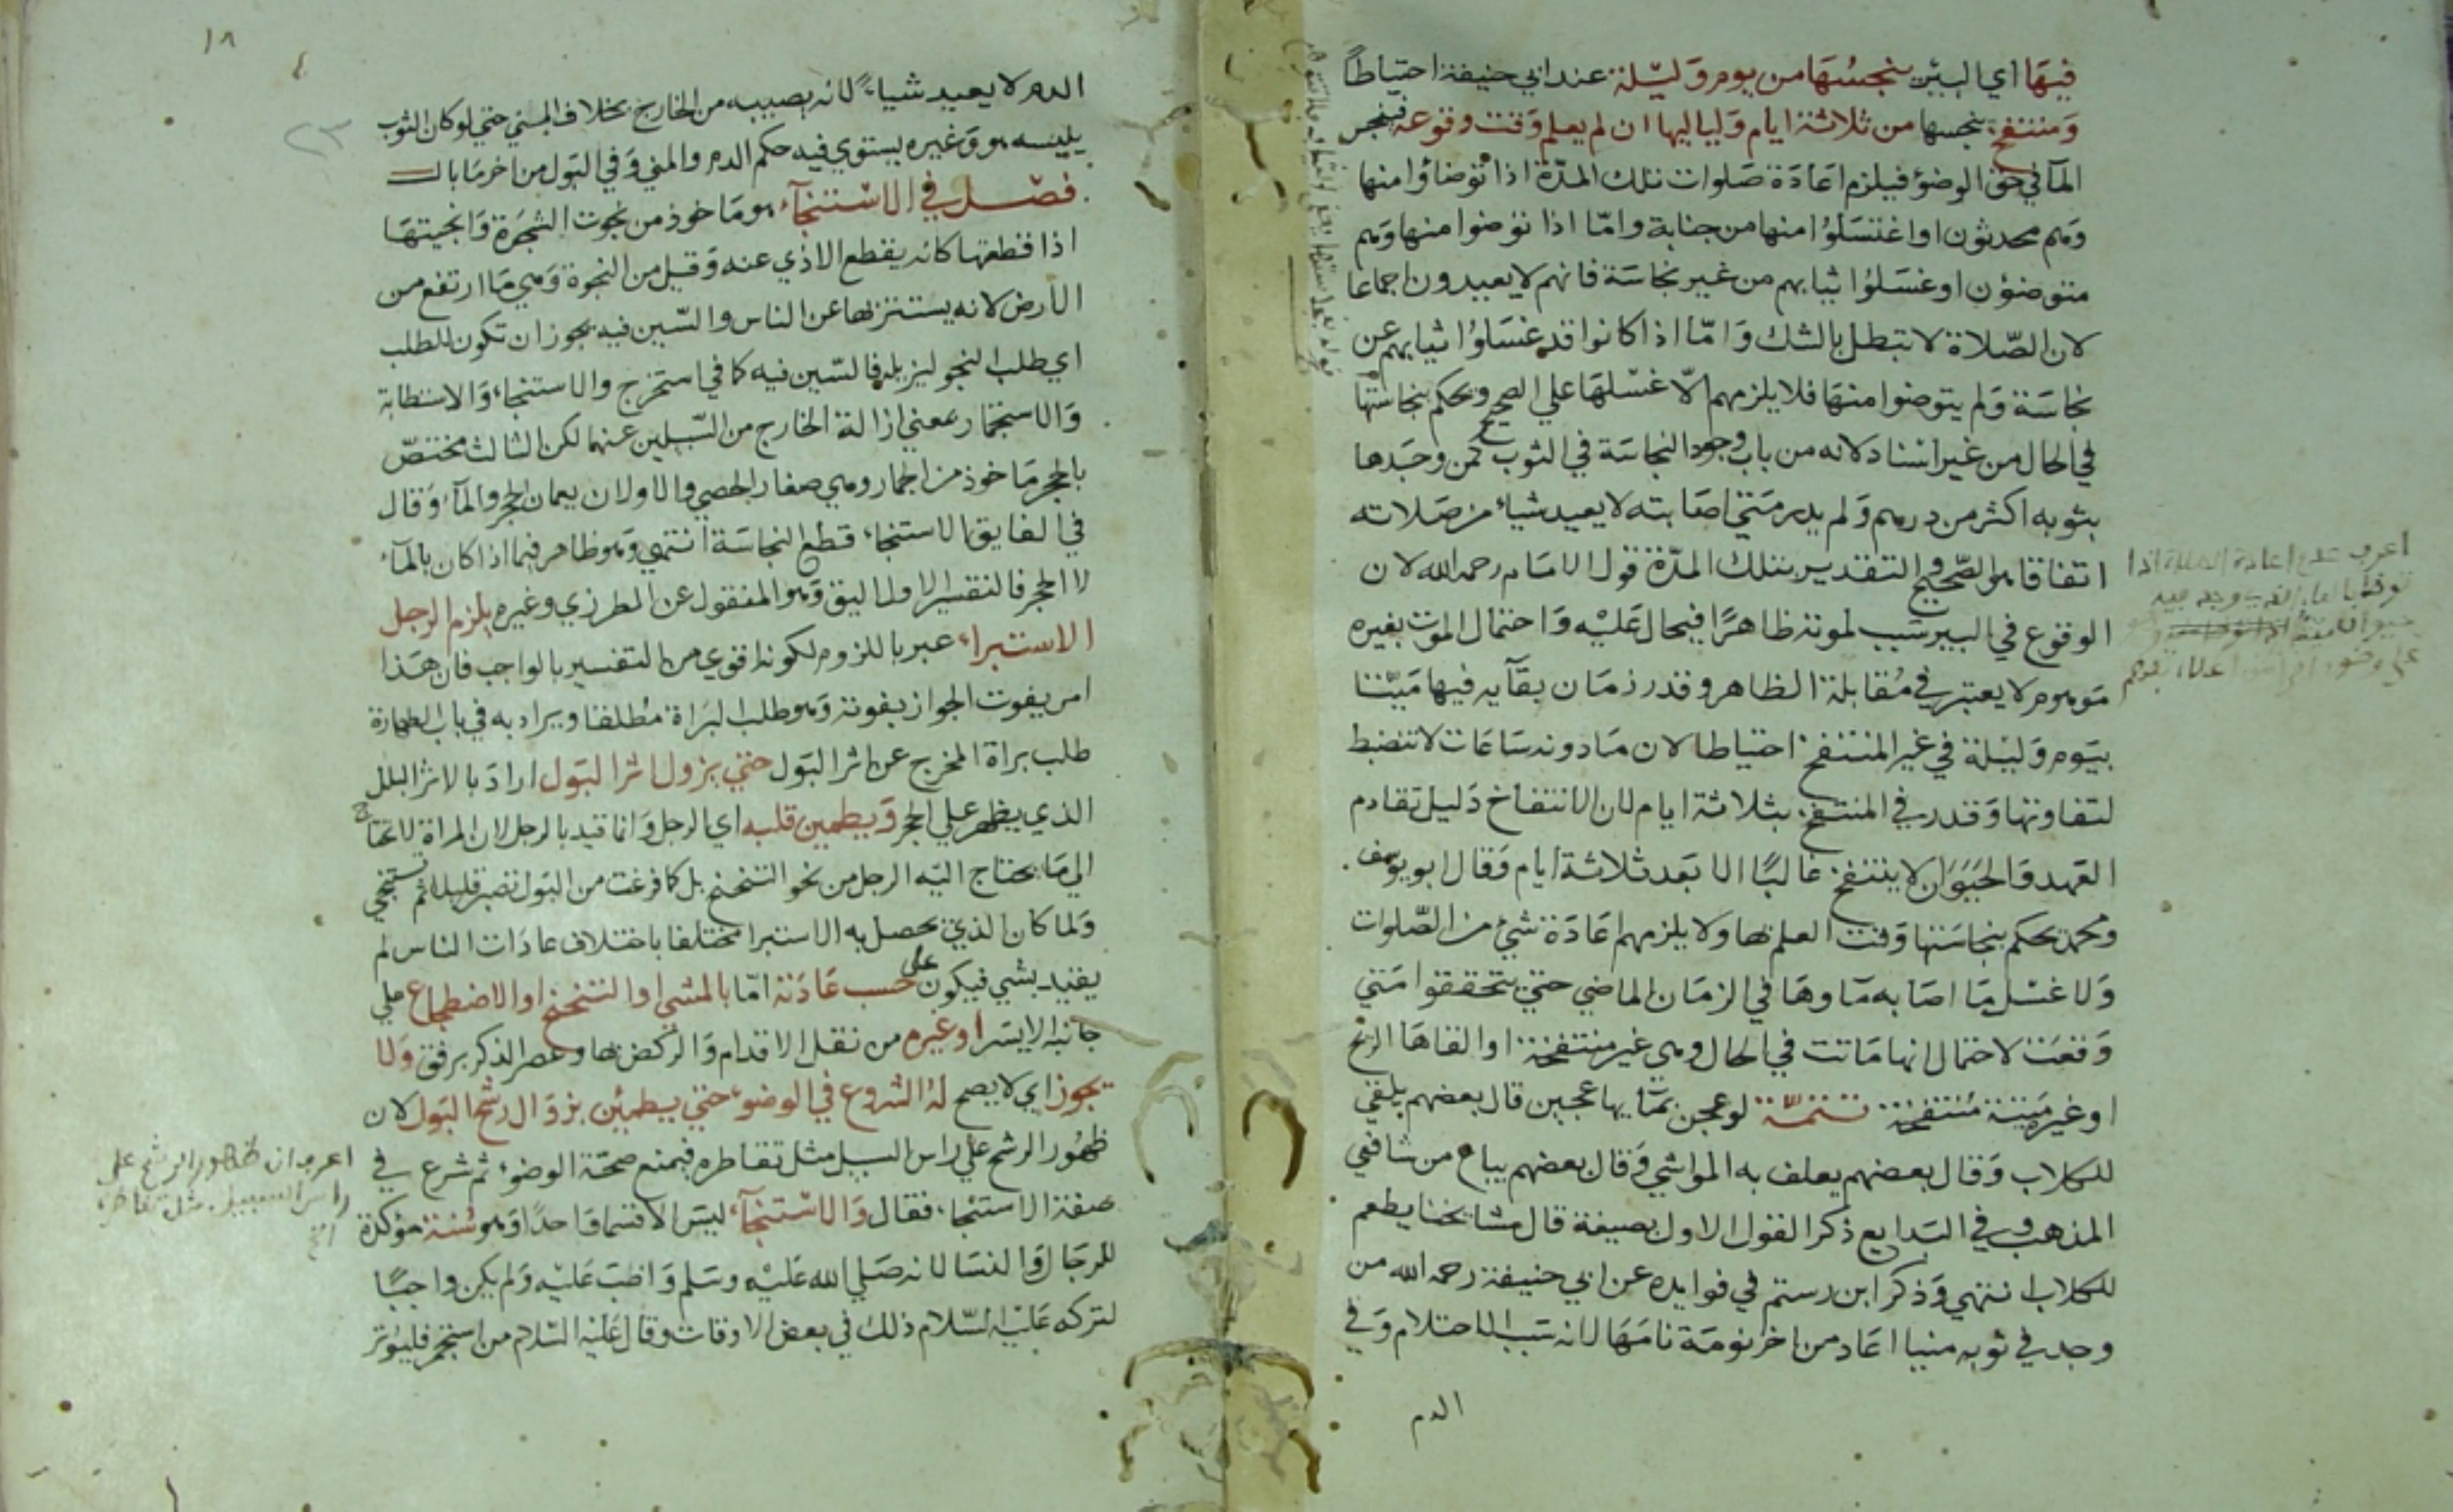 فيها اي البير ينجسها من يوم وليلة عند ابي حنيفة احتياطا
ومنتفخ ينجسها من ثلاثة ايام ولياليها ان لم يعلم وقت وقوعه فينجس
المآ في حق الوضؤ فيلزم اعادة صلوات تلك المدة اذا توضاؤا منها
وهم محدثون او اغتسلوا منها من جنابة واما اذا توضوا منها وهم
متوضؤن او غسلوا ثيابهم من غير نجاسة فانهم لا يعيدون اجماعا
لان الصلاة لا تبطل بالشك واما اذا كانوا قد غسلوا ثيابهم عن
نجاسة ولم يتوضوا منها فلا يلزمهم الا غسلها علي الصحيح ويحكم بنجاستها
في الحال من غير اسناد لانه من باب وجود النجاسة في الثوب كمن وجدها
بثوبه اكثر من درهم ولم يدر متي اصابته لا يعيد شياء من صلاته
اتفاقا هو الصحيح والتقدير بتلك المدة قول الامام رحمه الله لان
الوقوع في البير سبب لموته ظاهرا فيحال عليه واحتمال الموت بغيره
موهوم لا يعتبر في مقابلة الظاهر وقدر زمان بقآيه فيها ميتا
بيوم وليلة في غير المنتفخ احتياطا لان ما دونه ساعات لا تنضبط
لتفاوتها وقدر في المنتفخ بثلاثة ايام لان الانتفاخ دليل تقادم
العهد والحيوان لا ينتفخ غالبا الا بعد ثلاثة ايام وقال ابو يوسف
ومحمد يحكم بنجاستها وقت العلم بها ولا يلزمهم اعادة شيء من الصلوات
ولا غسل ما اصابه ماوها في الزمان الماضي حتي يتحققوا متي
وقعت لاحتمال انها ماتت في الحال وهي غير منتفخة او القاها الريح
او غيره ميتة منتفخة تتمة لو عجن بمآيها عجين قال بعضهم يلقي
للكلاب وقال بعضهم يعلف به المواشي وقال بعضهم يباع من شافعي
المذهب وفي البدايع ذكر القول الاول بصيغة قال مشايخنا يطعم
للكلاب انتهي وذكر ابن رستم في فوايده عن ابي حنيفة رحمه الله من
وجد في ثوبه منيا اعاد من اخر نومة نامها لانه سبب الاحتلام وفي
الدم
اعرف عدم اعادة الصلاة اذا
١٨
٢٣
الدم لا يعيد شياء لانه يصيبه من الخارج بخلاف المني حتي لو كان الثوب
يلبسه هو وغيره يستوي فيه حكم الدم والمني وفي البول من اخر ما بال
فصل في الاستنجآء هو ماخوذ من نجوت الشجرة وانجيتها
اذا قطعتها كانه يقطع الاذي عنه وقيل من النجوة وهي ما ارتفع من
الارض لانه يستتر بها عن الناس والسين فيه يجوز ان تكون للطلب
اي طلب النجو ليزيله فالسين فيه كما في استخرج والاستنجاء والاستطابة
والاستجمار بمعني ازالة الخارج من السبيلين عنهما لكن الثالث مختص
بالحجر ماخوذ من الجمار وهي صغار الحصي والاولان يعمان الحجر والمآء وقال
في الفايق الاستنجاء قطع النجاسة انتهي وهو ظاهر فيما اذا كان بالمآء
لا الحجر فالتفسير الاول اليق وهو المنقول عن المطرزي وغيره يلزم الرجل
الاستبراء عبر باللزوم لكونه اقوي من التفسير بالواجب فان هذا
امر يفوت الجواز بفوته وهو طلب البراة مطلقا ويراد به في باب الطهارة
طلب براة المخرج عن اثر البول حتي يزول اثر البول اراد بالاثر البلل
الذي يظهر علي الحجر ويطمين قلبه اي الرجل وانما قيد بالرجل لان المراة لا تحتاج
الي ما يحتاج اليه الرجل من نحو التنحنح بل كما فرغت من البول تصبر قليلا ثم تستنجي
ولما كان الذي يحصل به الاستبرا مختلفا باختلاف عادات الناس لم
يقيد بشي فيكون علي حسب عادته اما بالمشي او التنحنح او الاضطجاع علي
جانبه الايسر او غيره من نقل الاقدام والركض بها وعصر الذكر برفق ولا
يجوز اي لا يصح له الشروع في الوضوء حتي يطمئن بزوال رشح البول لان
ظهور الرشح علي راس السبيل مثل تقاطره فيمنع صحة الوضوء ثم شرع في
صفة الاستنجاء فقال والاستنجآء ليس الا قسما واحدا وهو سنة مؤكدة
للرجال والنسا لانه صلي الله عليه وسلم واظب عليه ولم يكن واجبا
لتركه عليه السلام ذلك في بعض الاوقات وقال عليه السلام من استجمر فليوتر
اعرف ان ظهور الرشح على
راس السبيل مثل تقاطره
الخ